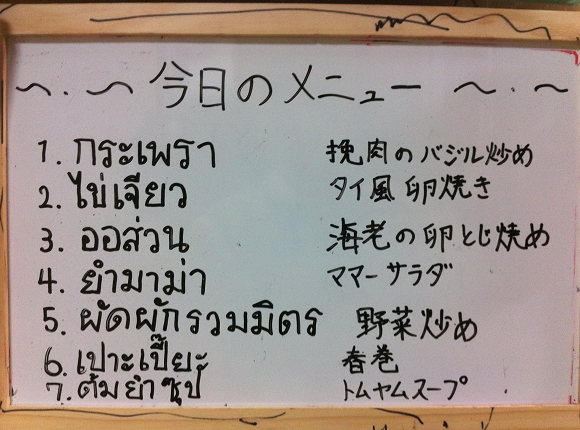 ～・～ 今日のメニュー ～・～
1. กระเพรา 挽肉のバジル炒め
2. ไข่เจียว タイ風卵焼き
3. ออส่วน 海老の卵とじ焼め
4. ยำมาม่า ママーサラダ
5. ผัดผักรวมมิตร 野菜炒め
6. เปาะเปี๊ยะ 春巻
7. ต้มยำซุป トムヤムスープ